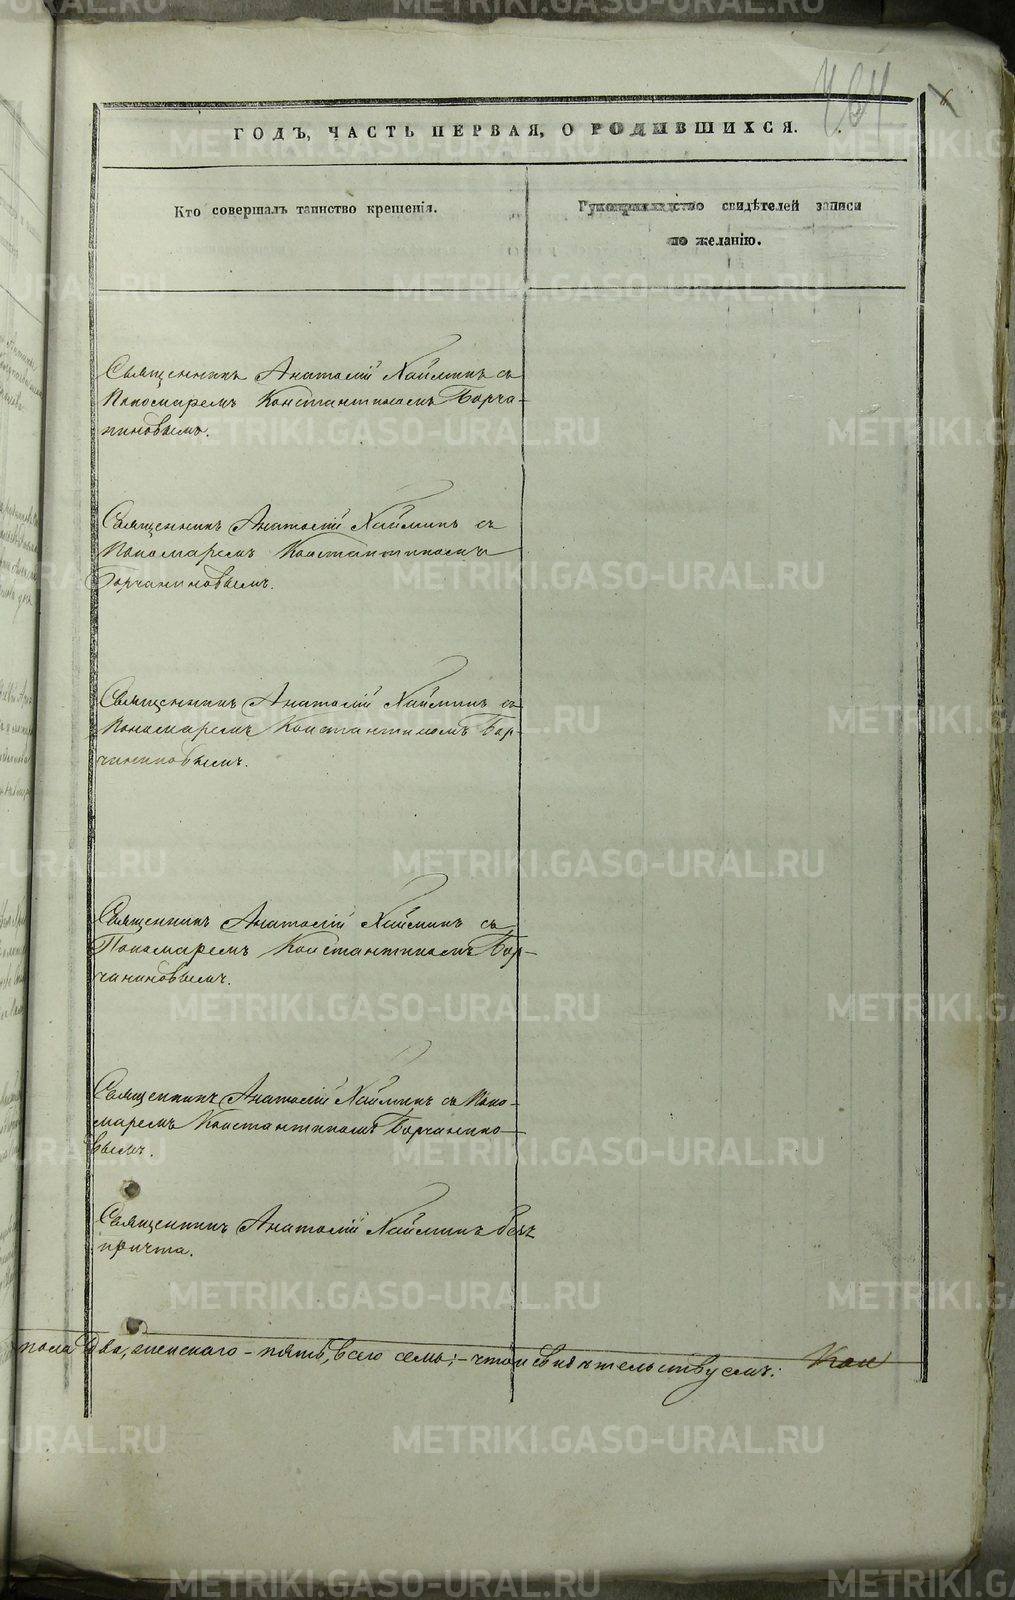 464
ГОДЪ, ЧАСТЬ ПЕРВАЯ, О РОДИВШИХСЯ.
Кто совершалъ таинство крещенія.
Рукоприкладство свидѣтелей записи
по желанію.
Священникъ Анатолій Наймликъ съ
Пономаремъ Константиномъ Борча-
ниновымъ.
Священникъ Анатолій съ
Пономаремъ Константиномъ
Борчаниновымъ.
Священникъ Анатолій съ
Пономаремъ Константиномъ Бор-
чаниновымъ.
Священникъ Анатолій съ
Пономаремъ Константиномъ Бор-
чаниновымъ.
Священникъ Анатолій съ Поно-
маремъ Константиномъ Борчанино-
вымъ.
Священникъ Анатолій безъ
причта.
пола два, женскаго - пять, всего семь; - что и свидѣтельствуемъ:
METRIKI.GASO-URAL.RU